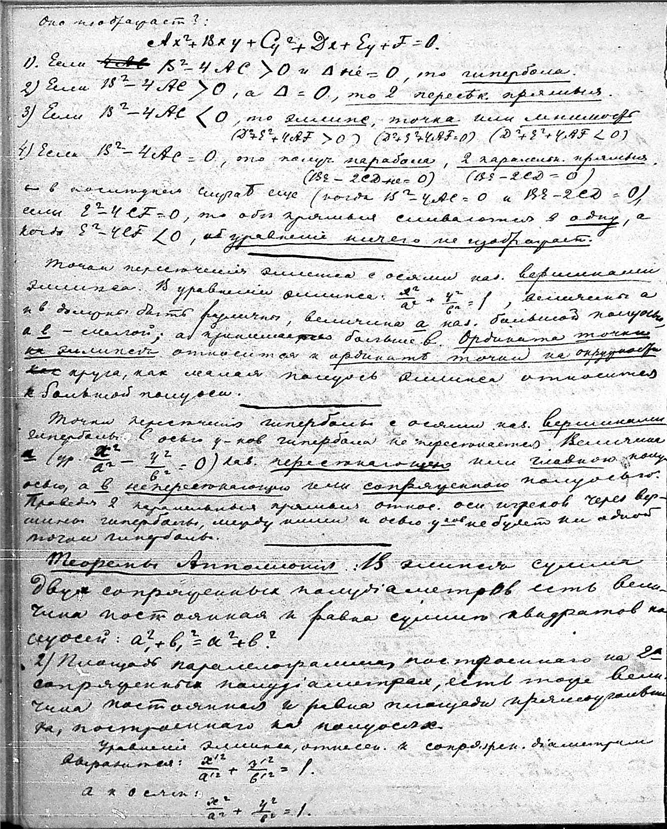 Оно изображает?:
Ax²+Bxy+Cy²+Dx+Ey+F=0.
1). Если B²-4AC > 0 и Δ не = 0, то гипербола.
2) Если B²-4AC > 0, а Δ = 0, то 2 пересѣк. прямыя.
3) Если B²-4AC < 0, то эллипс, точка или мнимость
(D²+E²+4AF > 0) (D²+E²+4AF=0) (D²+E²+4AF < 0)
4) Если B²-4AC = 0, то получ. парабола, 2 параллельн. прямыя.
(BE-2CD не = 0) (BE-2CD = 0)
в последнем случаѣ еще (когда B²-4AC = 0 и BE-2CD = 0),
если E²-4CF=0, то обѣ прямыя сливаются в одну, а
когда E²-4CF < 0, уравненіе ничего не изображает.
Точки пересѣченія эллипса с осями наз. вершинами
эллипса. В уравненіи эллипса: x²/a² + y²/b² = 1, величины a
и b должны быть различны, величина a наз. большой полуосью
а b - малой; a больше b. Ордината точки
на эллипсѣ относится к ординатѣ точки на окружности
круга, как малая полуось эллипса относится
к большой полуоси.
Точки пересѣченія гиперболы с осями наз. вершинами
гиперболы. С осью y-ков гипербола не пересѣкается. Величина
a (ур. x²/a² - y²/b² = 0) наз. пересѣкающею или главною полу-
осью, а b непересѣкающею или сопряженною полуосью.
Проведя 2 параллельныя прямыя относ. оси игреков через вер-
шины гиперболы, между ними и осью не будет ни одной
точки гиперболы.
Теоремы Апполонія: 1) В эллипсѣ сумма
двух сопряженных полудіаметров есть вели-
чина постоянная и равна суммѣ квадратов по-
луосей: a₁²+b₁²=a²+b².
2) Площадь параллелограмма, построеннаго на 2-х
сопряженных полудіаметрах, есть тоже вели-
чина постоянная и равна площади прямоугольни-
ка, построеннаго на полуосях.
Уравненіе эллипса, относен. к сопряжен. діаметрам
выразится: x'²/a'² + y'²/b'² = 1.
а к осям:
x²/a² + y²/b² = 1.